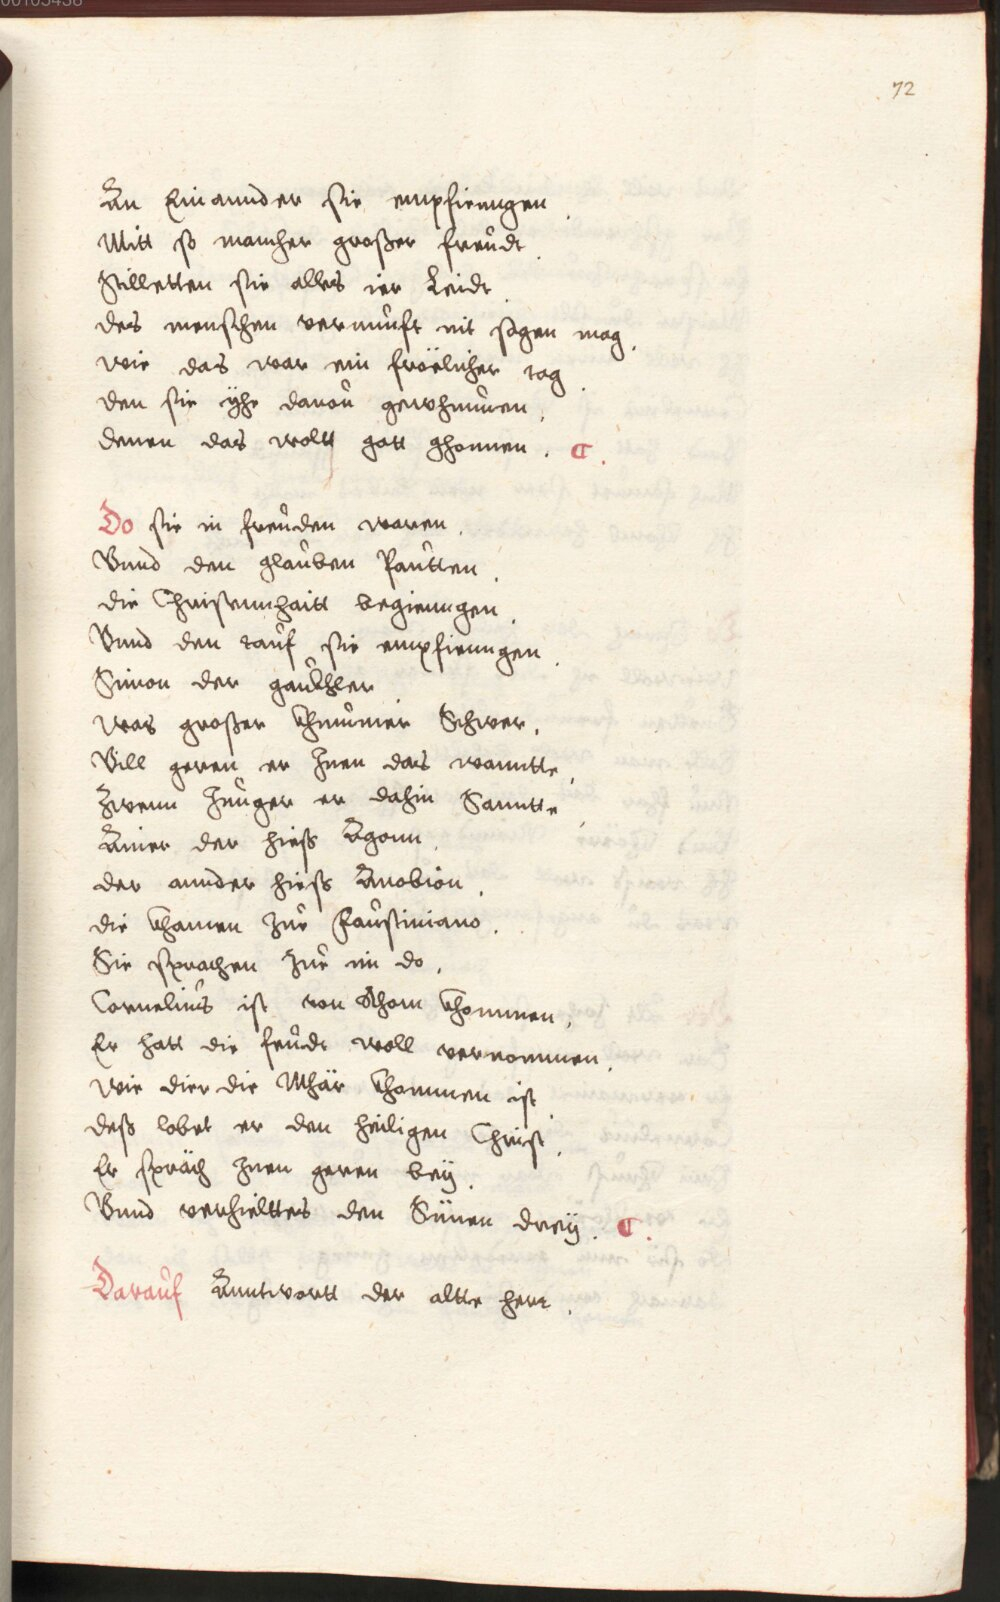 72
An Einannder sie empfienngen.
Mitt so mancher großer freudt.
Stilletten sie alles ier Leidt.
des menschen vernunft nit sagen mag.
wie das war ein fröelicher tag.
den sie ÿhe dauon gewhunnen.
denen das woltt gott ghonnen. C.
Do sie in freuden waren.
Vnnd den glauben Pautten.
die Christennhaitt begienngen.
Vnnd den tauf sie empfienngen.
Simon der gaukhler.
was großer khummer Schwer.
Vill geren er Inen das wanntte.
Zwenn Junger er dahin Sanntte.
Ainer der hieß Agonn.
der annder hieß Anobion.
die khamen zue Faustiniano.
Sie sprachen zue im do.
Cornelius ist von Rhom khommen.
Er hatt die freudt woll vernommen.
wie dier die Mhär khommen ist.
deß lobet er den heiligen Christ.
Er spräch Inen geren beÿ.
Vnnd verhielttes den Sünen dreÿ. C.
Darauf Anntwortt der altte herr.